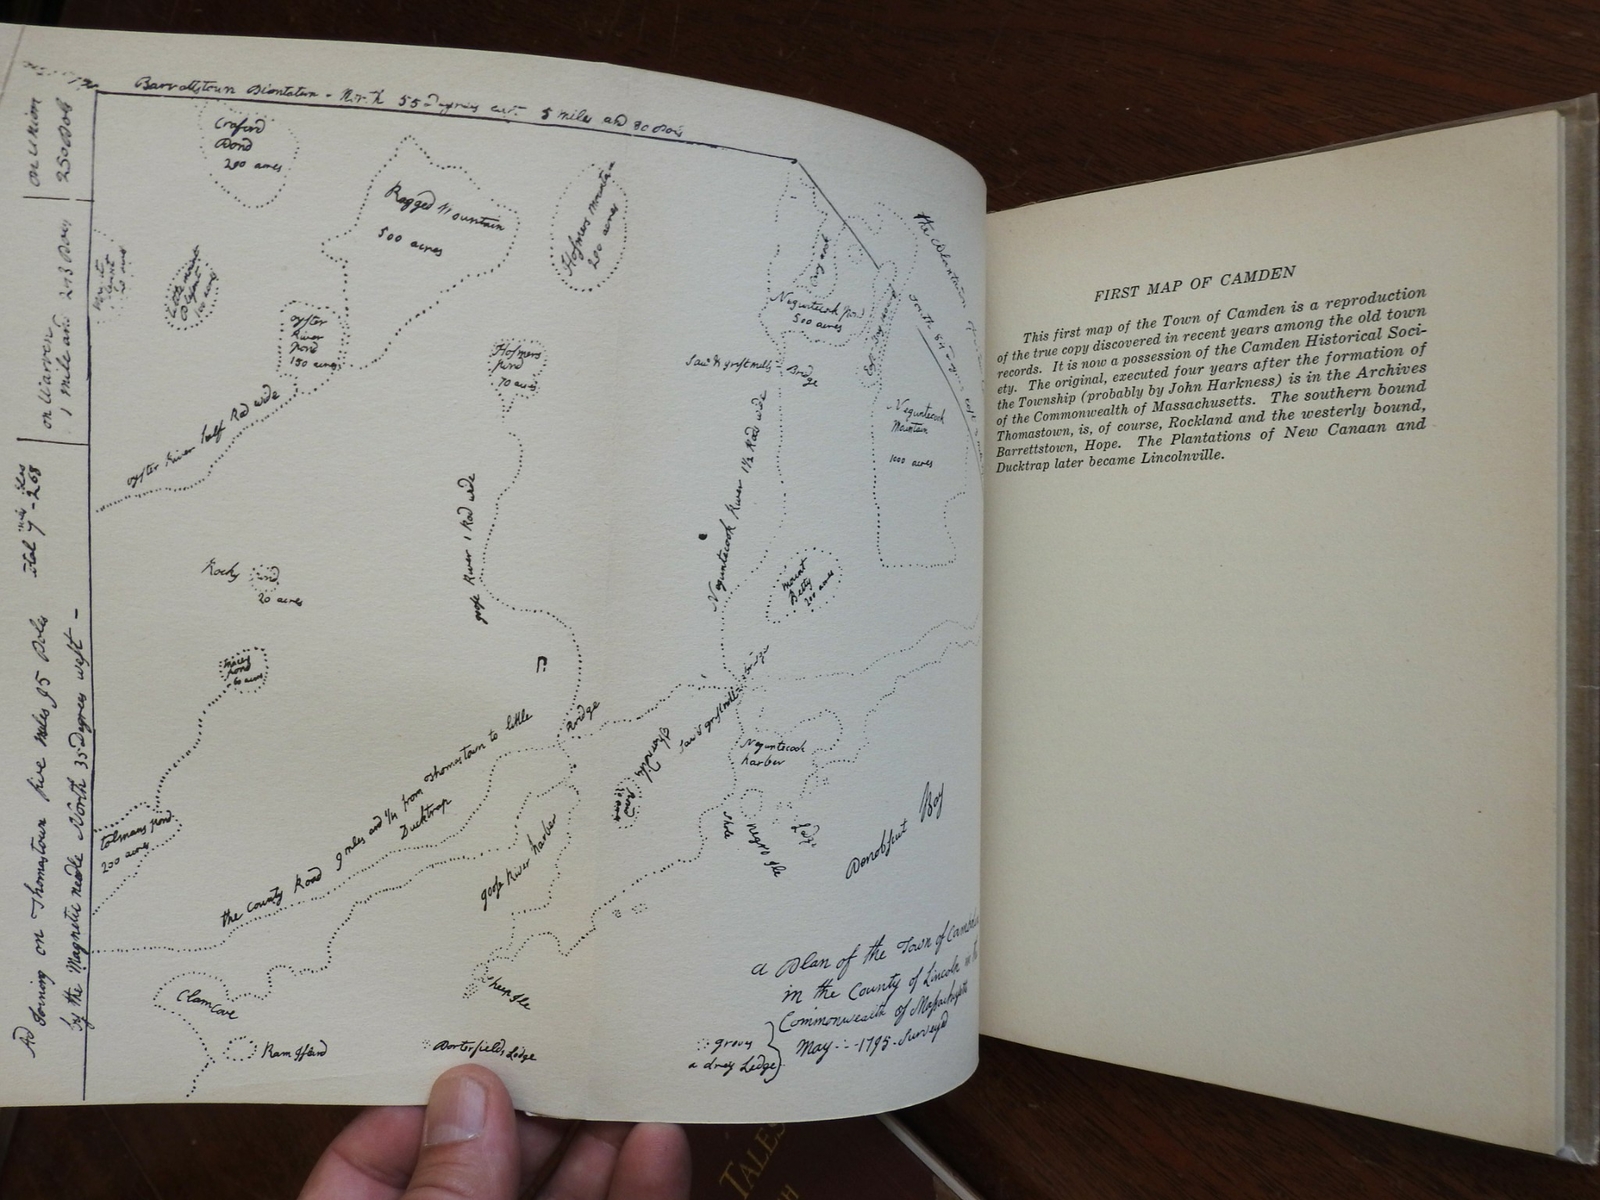 Barrottstown Plontation - North 55 Degrees east 5 miles and 80 Pols
on Union
250 Pols
on Warren
1 mile and 293 Pols
Ad Joining on Thomastown five miles 95 Poles
total 7 - 268
by the Magnetic needle North 35 Degrees west -
Craford
Pond
200 acres
Ragged Mountain
500 acres
Hofmers Mountain
200 acres
oyster
River
Pond
150 acres
Hofmers
Pond
70 acres
oyster River half Rod wide
goose River 1 Rod wide
Neguntecook Pond
500 acres
Saw & grist mills
Bridge
Neguntecook
Mountain
1000 acres
Neguntecook River 1½ Rod wide
Mount
Betty
200 acres
Rocky Pond
20 acres
Tolmans Pond
200 acres
Bridge
the County Road 9 miles and ½ from Thomastown to little
Ducktrap
goose River harber
Saw & grist mill
Bridge
Neguntecook
harber
Penobscut Bay
Clam Cove
Ram Island
Sheep Ile
Porterfields Ledge
green
a drey Ledge
a Plan of the Town of Camden
in the County of Lincoln
Commonwealth of Massachusets
May - 1795 - Surveyd
FIRST MAP OF CAMDEN
This first map of the Town of Camden is a reproduction
of the true copy discovered in recent years among the old town
records. It is now a possession of the Camden Historical Soci-
ety. The original, executed four years after the formation of
the Township (probably by John Harkness) is in the Archives
of the Commonwealth of Massachusetts. The southern bound
Thomastown, is, of course, Rockland and the westerly bound,
Barrettstown, Hope. The Plantations of New Canaan and
Ducktrap later became Lincolnville.
TALES